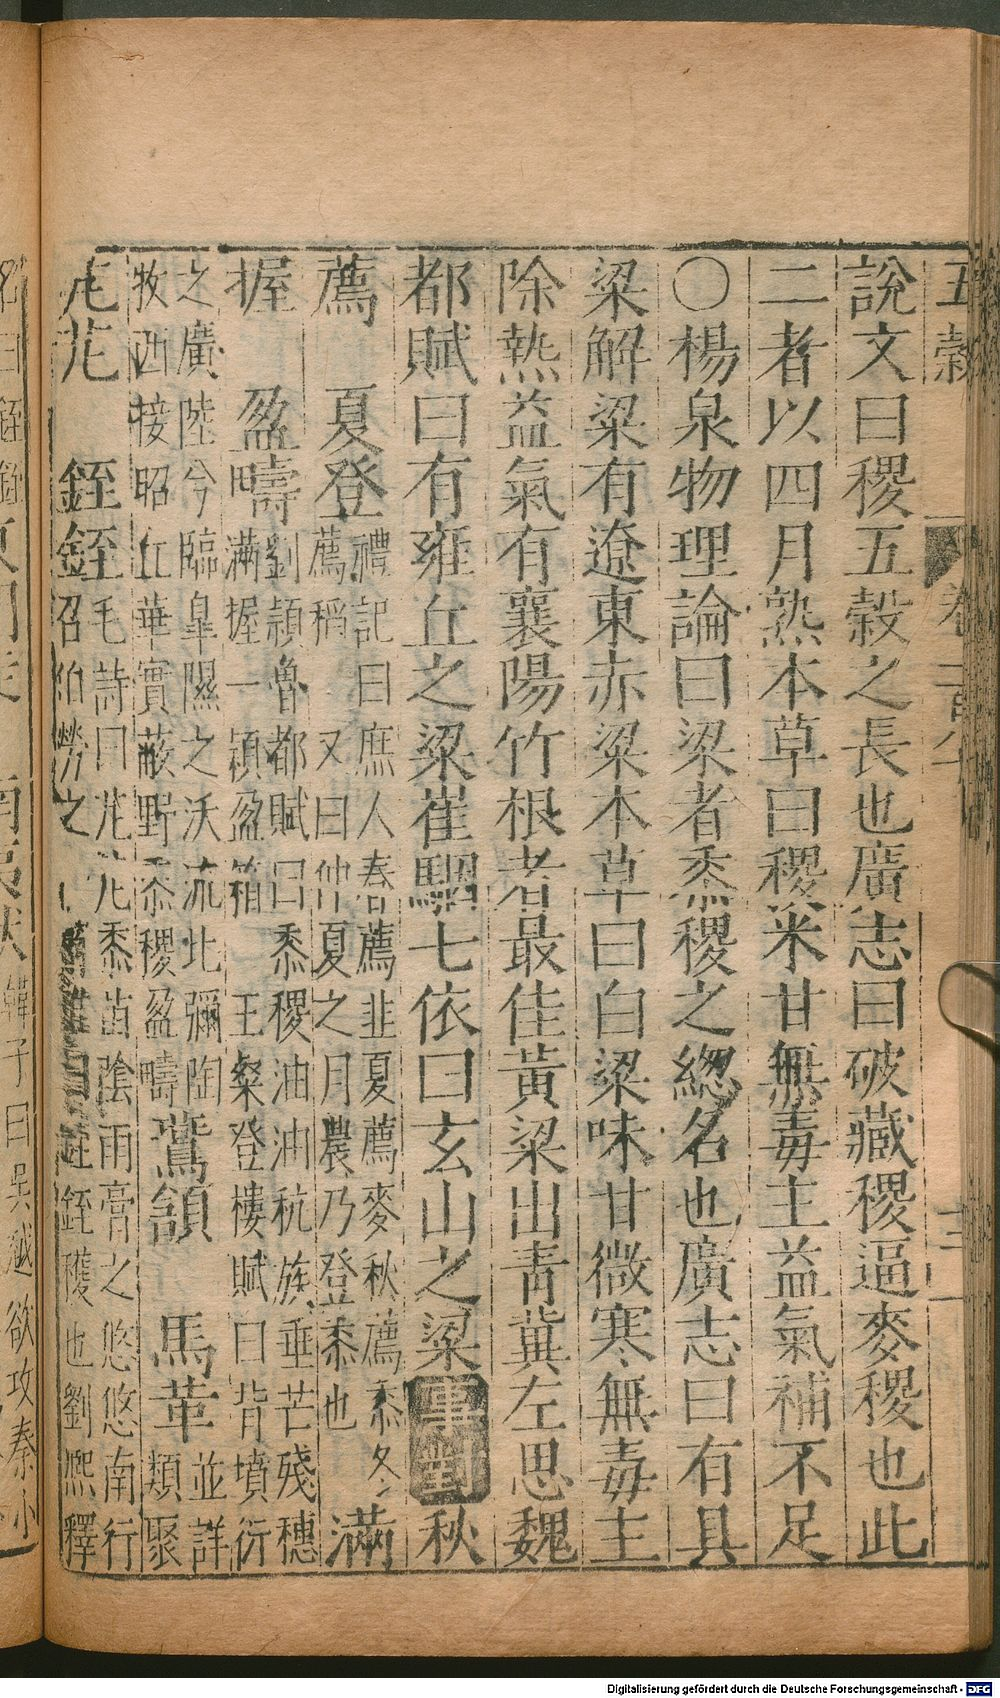 五穀
說文曰稷五穀之長也廣志曰破藏稷逼麥稷也此
二者以四月熟本草曰稷米甘無毒主益氣補不足
○楊泉物理論曰梁者黍稷之緫名也廣志曰有具
梁解梁有遼東赤梁本草曰白梁味甘微寒無毒主
除熱益氣有襄陽竹根者最佳黃粱出青冀左思魏
都賦曰有雍丘之梁崔駰七依曰玄山之粱 事對 秋
薦 夏登 禮記曰庶人春薦韭夏薦麥秋薦黍冬
薦稻 又曰仲夏之月農乃登黍也 滿
握 盈疇 劉頴魯都賦曰黍稷油油秔族垂芒殘穗
滿握一穎盈箱 王粲登樓賦曰背墳衍
之廣陸兮臨皐隰之沃流北彌陶
牧西接昭丘華實蔽野黍稷盈疇 鷟頷 馬革 並詳
類聚
芃芃 銍銍 毛詩曰芃芃黍苗陰雨膏之悠悠南行
召伯勞之 銍銍穫也劉熙釋
名曰 韓子曰吳越欲攻秦小
Digitalisierung gefördert durch die Deutsche Forschungsgemeinschaft - DFG